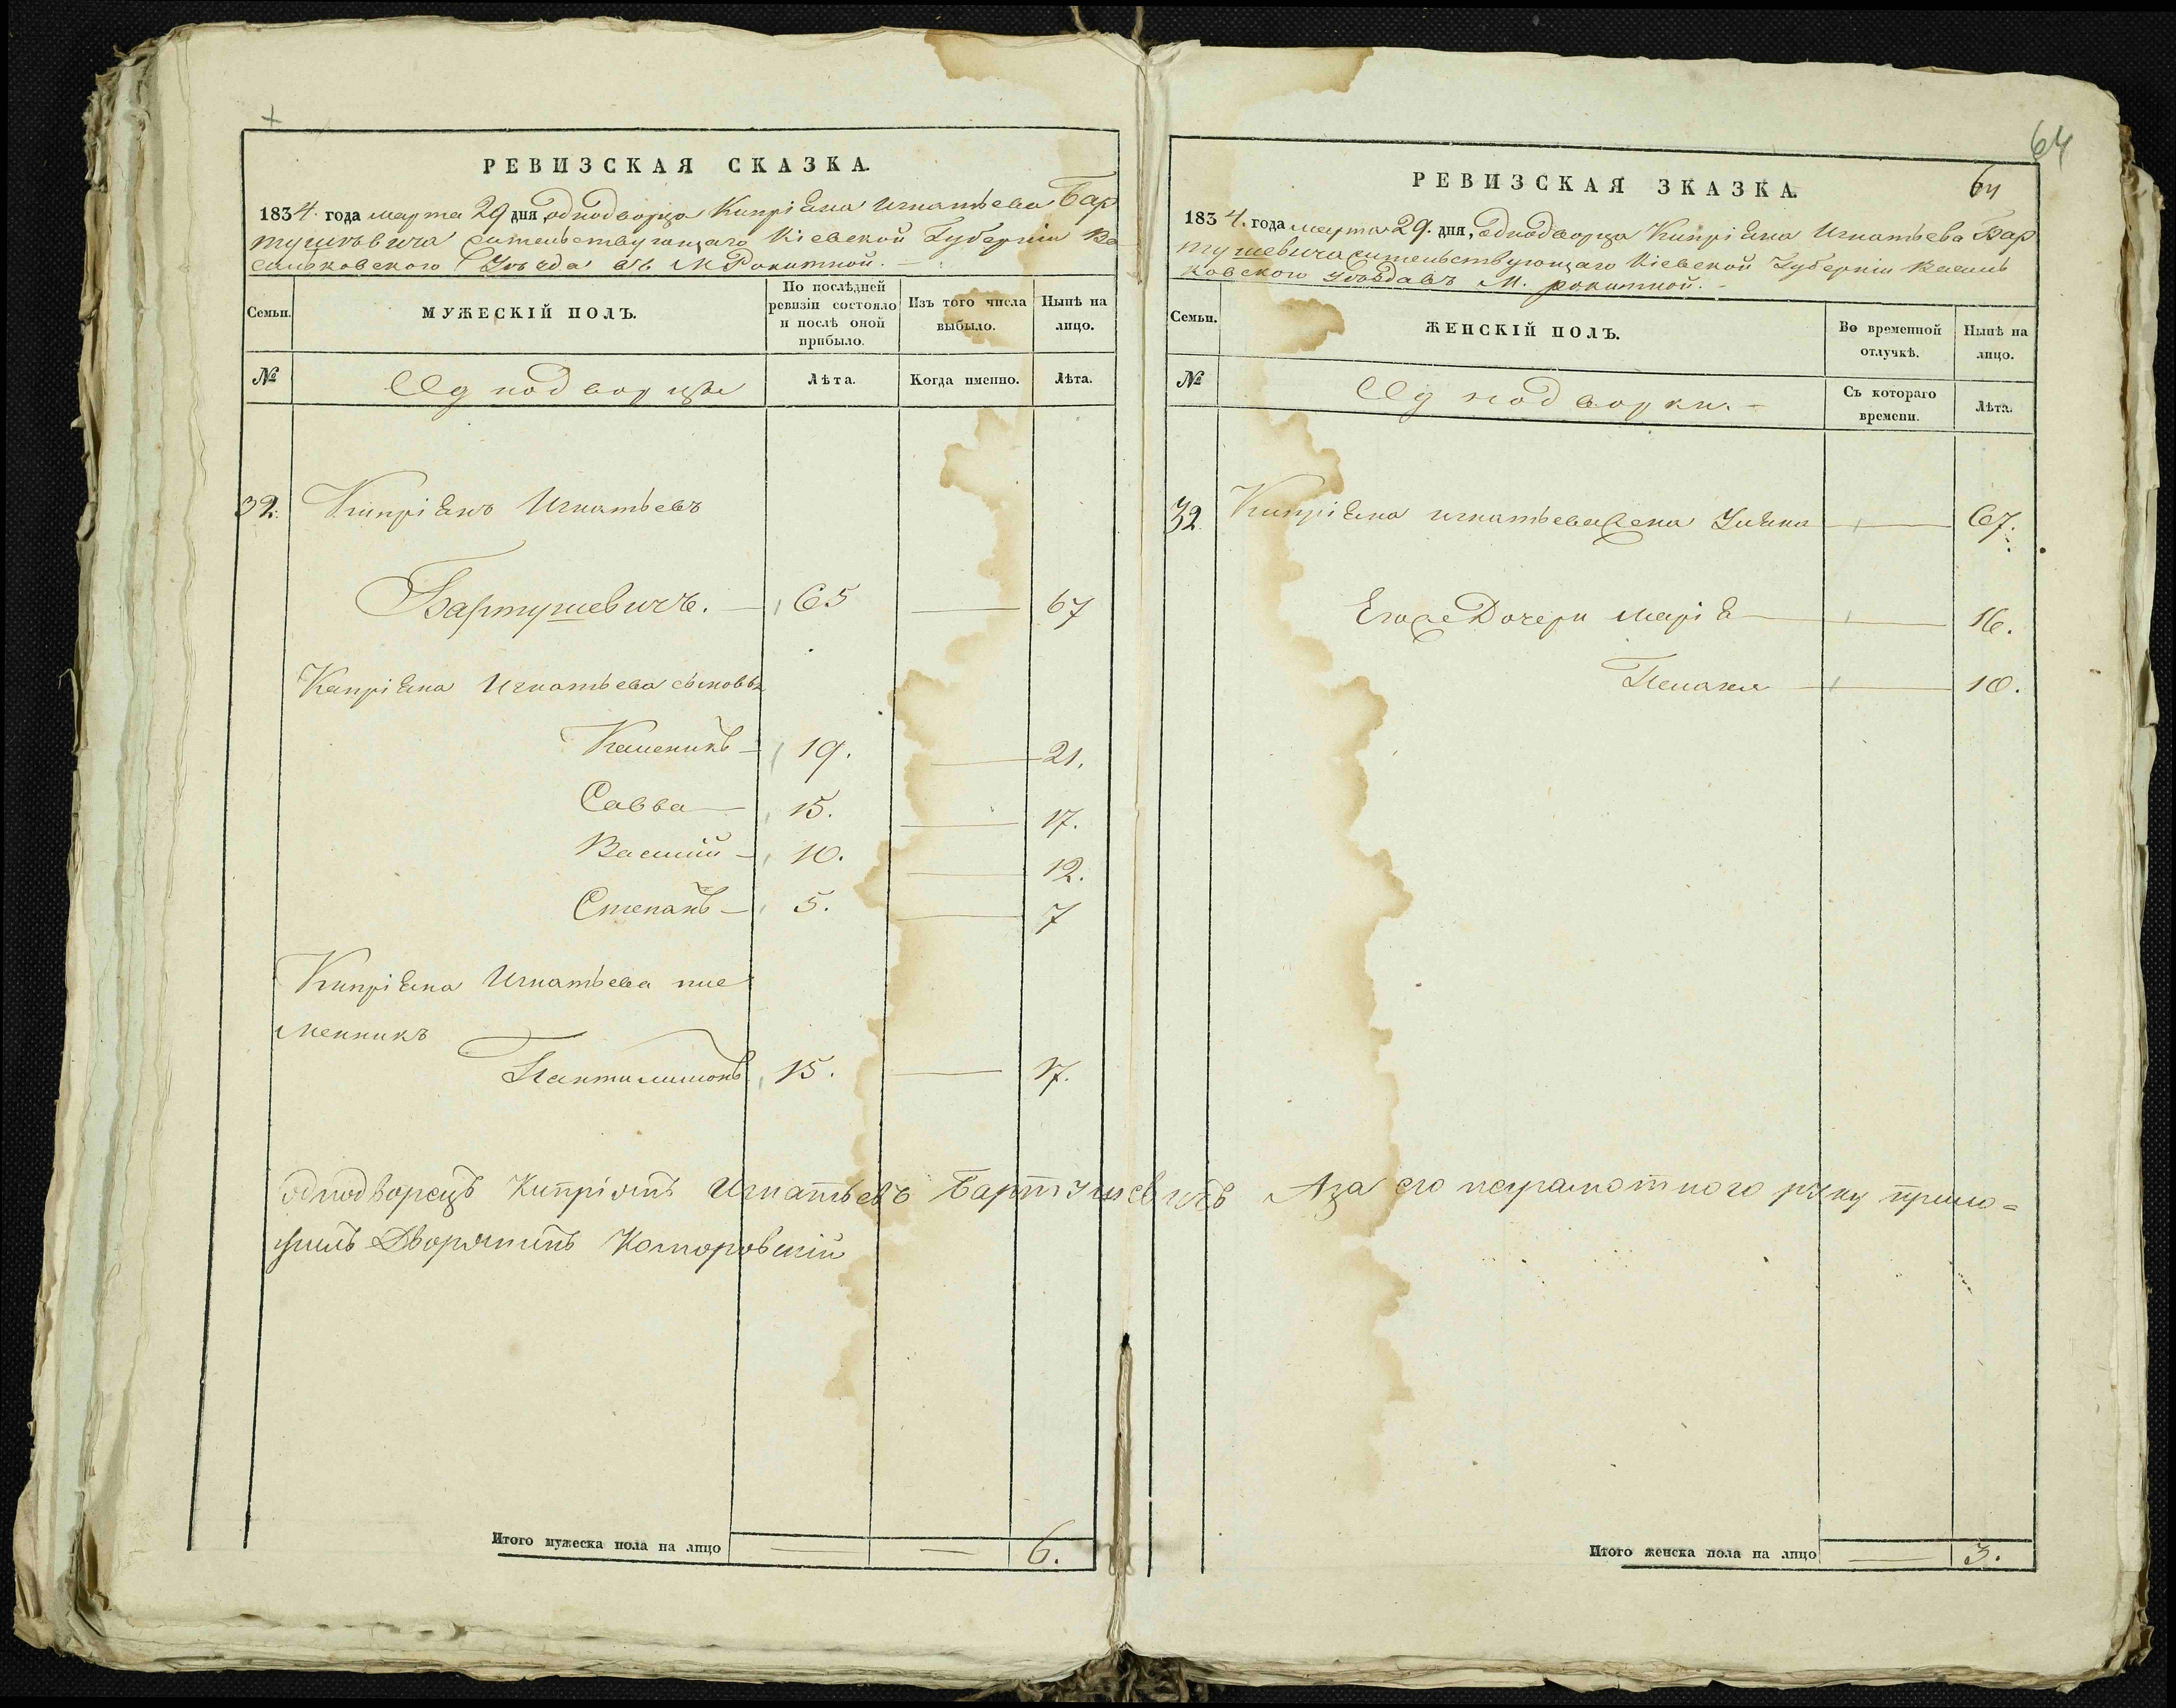 РЕВИЗСКАЯ СКАЗКА.
1834. года марта 29 дня, однодворца Кипріяна Игнатьева Бар
тушевича жительствующаго Кіевской Губерніи Ва
сильковского Уѣзда въ М Рокитной.
Семьи.
МУЖЕСКІЙ ПОЛЪ.
По послѣдней ревизіи состояло и послѣ оной прибыло.
Изъ того числа выбыло.
Нынѣ на лицо.
№
Однодворцы
Лѣта.
Когда именно.
Лѣта.
32. Кипріянъ Игнатьевъ
Бартушевичъ. — 65 — 67
Кипріяна Игнатьева сыновья
— 19. — 21.
Савва — 15. — 17.
Василій — 10. — 12.
Степанъ — 5. — 7
Кипріяна Игнатьева пле
менникъ
Пантилимонъ 15. — 17.
Однодворецъ Кипріянъ Игнатьевъ Бартушевичъ А за его неграмотного руку прило=
жилъ Дворянинъ Коморовскій
Итого мужеска пола на лицо — — 6.
64
64
РЕВИЗСКАЯ ЗКАЗКА.
1834. года марта 29. дня, Однодворца Кипріяна Игнатьева Бар
тушевича жительствующаго Кіевской Губерніи Василь
ковского Уѣзда въ М. рокитной.
Семьи.
ЖЕНСКІЙ ПОЛЪ.
Во временной отлучкѣ.
Нынѣ на лицо.
№
Однодворки.
Съ котораго времени.
Лѣта.
32. Кипріяна игнатьева жена Уліяна — 67.
Егоже Дочери Марія — 16.
Пелагея — 10.
Итого женска пола на лицо — 3.